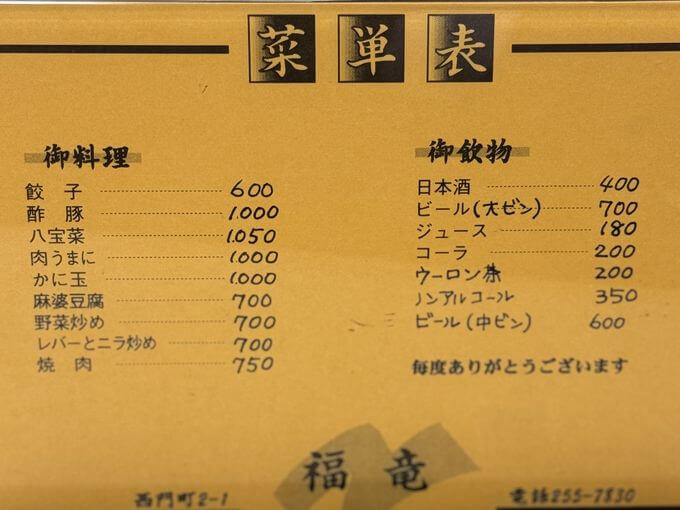 菜単表
御料理
餃子 600
酢豚 1.000
八宝菜 1.050
肉うまに 1.000
かに玉 1.000
麻婆豆腐 700
野菜炒め 700
レバーとニラ炒め 700
焼肉 750
御飲物
日本酒 400
ビール(大ビン) 700
ジュース 180
コーラ 200
ウーロン茶 200
ノンアルコール 350
ビール(中ビン) 600
毎度ありがとうございます
福竜
西門町2-1
電話255-7830